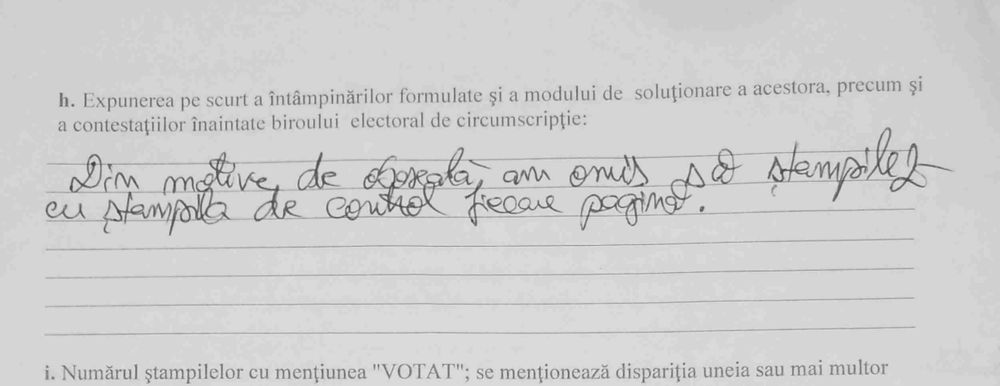 h. Expunerea pe scurt a întâmpinărilor formulate şi a modului de soluţionare a acestora, precum şi
a contestaţiilor înaintate biroului electoral de circumscripţie:
Din motive de oboseală, am omis să ştampilez
cu ştampila de control fiecare pagină.
i. Numărul ştampilelor cu menţiunea "VOTAT"; se menţionează dispariţia uneia sau mai multor